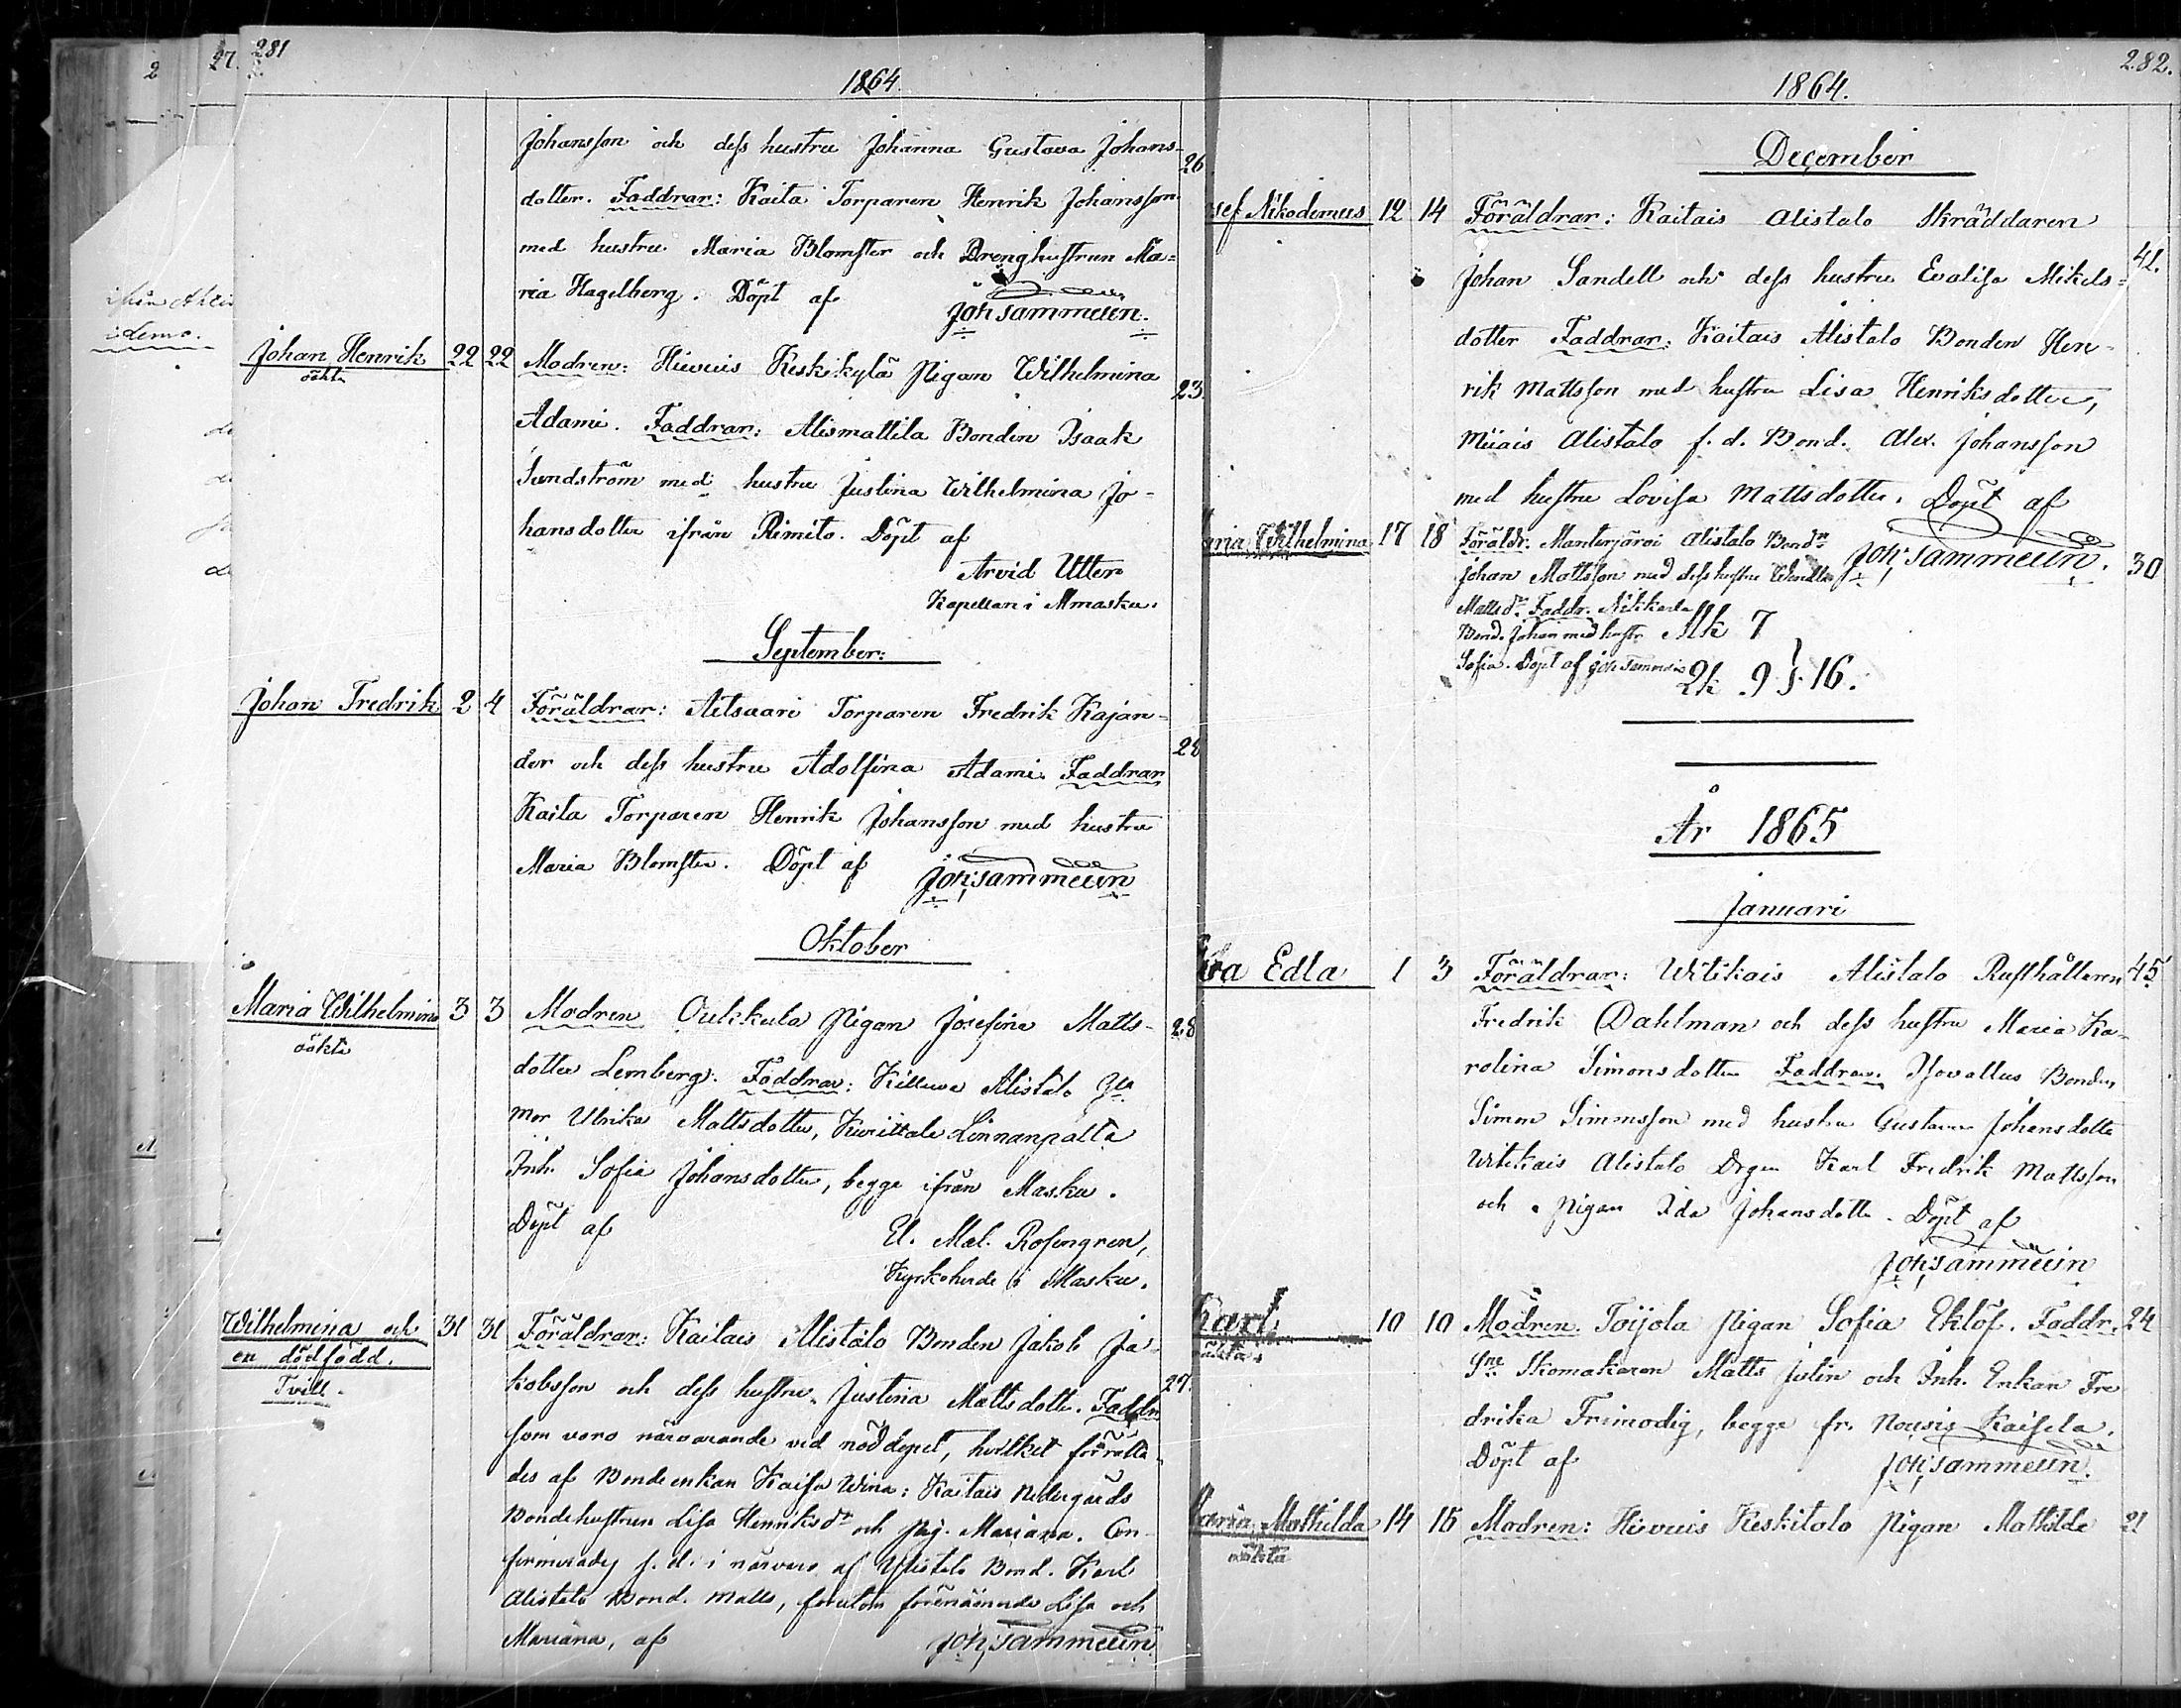 281
1864.
Johansson och dess hustru Johanna Gustava Johans- 26
dotter. Faddrar: Kaita Torparen Henrik Johansson
med hustru Maria Blomster och Drenghustrun Ma=
ria Hagelberg. Döpt af Joh Sammelin.
Johan Henrik 22 22 Modren: Hiervuis Keskikylä Pigan Wilhelmina 23.
oäkta
Adami. Faddrar: Alismattila Bonden Isaak
Sundström med hustru Justina Wilhelmina Jo-
hansdotter ifrån Rimito. Döpt af
Arvid Utter
Kapellan i
September:
Johan Fredrik 2 4 Föräldrar: Aitsaari Torparen Fredrik Kajan- 28
der och dess hustru Adolfina Adami. Faddrar
Kaita Torparen Henrik Johansson med hustru
Maria Blomster. Döpt af Joh. Sammelin
Oktober
Maria Wilhelmina 3 3 Modren Oukkula Pigan Josefina Matts- 28
oäkta
dotter Lemberg. Faddrar: Alistalo
mor Ulrika Mattsdotter, Linnanpatta
Inh. Sofia Johansdotter, begge ifrån Masku.
Döpt af El. Mal. Rosengren,
Kyrkoherde i Masku.
Wilhelmina och 31 31 Föräldrar: Kaitais Alistalo Bonden Jakob Ja-
en dödfödd.
Tvill.
kobsson och dess hustru Justina Mattsdotter. Faddr. 27.
som voro närvarande vid nöddopet, hvilket förrätta-
des af Bondeenkan Kaisa Wina: Kaitais Nedergårds
Bondehustrun Lisa Henriksdr och Pig. Mariana. Con-
firmerades s. d. i närvaro af Bond. Karl
Alistalo Bond. Matts, förutom förenämnde Lisa och
Mariana, af Joh. Sammelin
282.
1864.
December
sef Nikodemus 12 14 Föräldrar: Kaitais Alistalo Skräddaren
Johan Sandell och dess hustru Evalisa Mikels= 42.
dotter Faddrar: Kaitais Alistalo Bonden Hen-
rik Mattsson med hustru Lisa Henriksdotter,
Alistalo f. d. Bond. Alex. Johansson
med hustru Lovisa Mattsdotter. Döpt af
Joh. Sammelin.
ria Wilhelmina 17 18 Föräldr. Manterjärvi Alistalo Bondn 30
Johan Mattsson med dess hustru Wendla
Mattsdr. Faddr.
Bond. Johan med hustr. Mk 7
Sofia. Döpt af Joh Sammelin Qk 9 } 16.
År 1865
Januari
Eva Edla 1 3 Föräldrar: Witikais Alistalo Rusthållaren 45
Fredrik Dahlman och dess hustru Maria Ka-
rolina Simonsdotter Faddrar. Isovallus Bonden
Simon Simonsson med hustru Gustava Johansdotter
Witikais Alistalo Drgen Karl Fredrik Mattsson
och Pigan Ida Johansdotter. Döpt af
Joh. Sammelin
Karl 10 10 Modren. Toijola Pigan Sofia Eklöf. Faddr. 24
oäkta.
Skomakaren Matts Julin och Inh. Enkan Fre
drika Frimodig, begge fr. Nousis Kaisela.
Döpt af Joh. Sammelin.
Maria Mathilda 14 15 Modren: Hiervuis Keskitalo Pigan Mathilda 21
oäkta